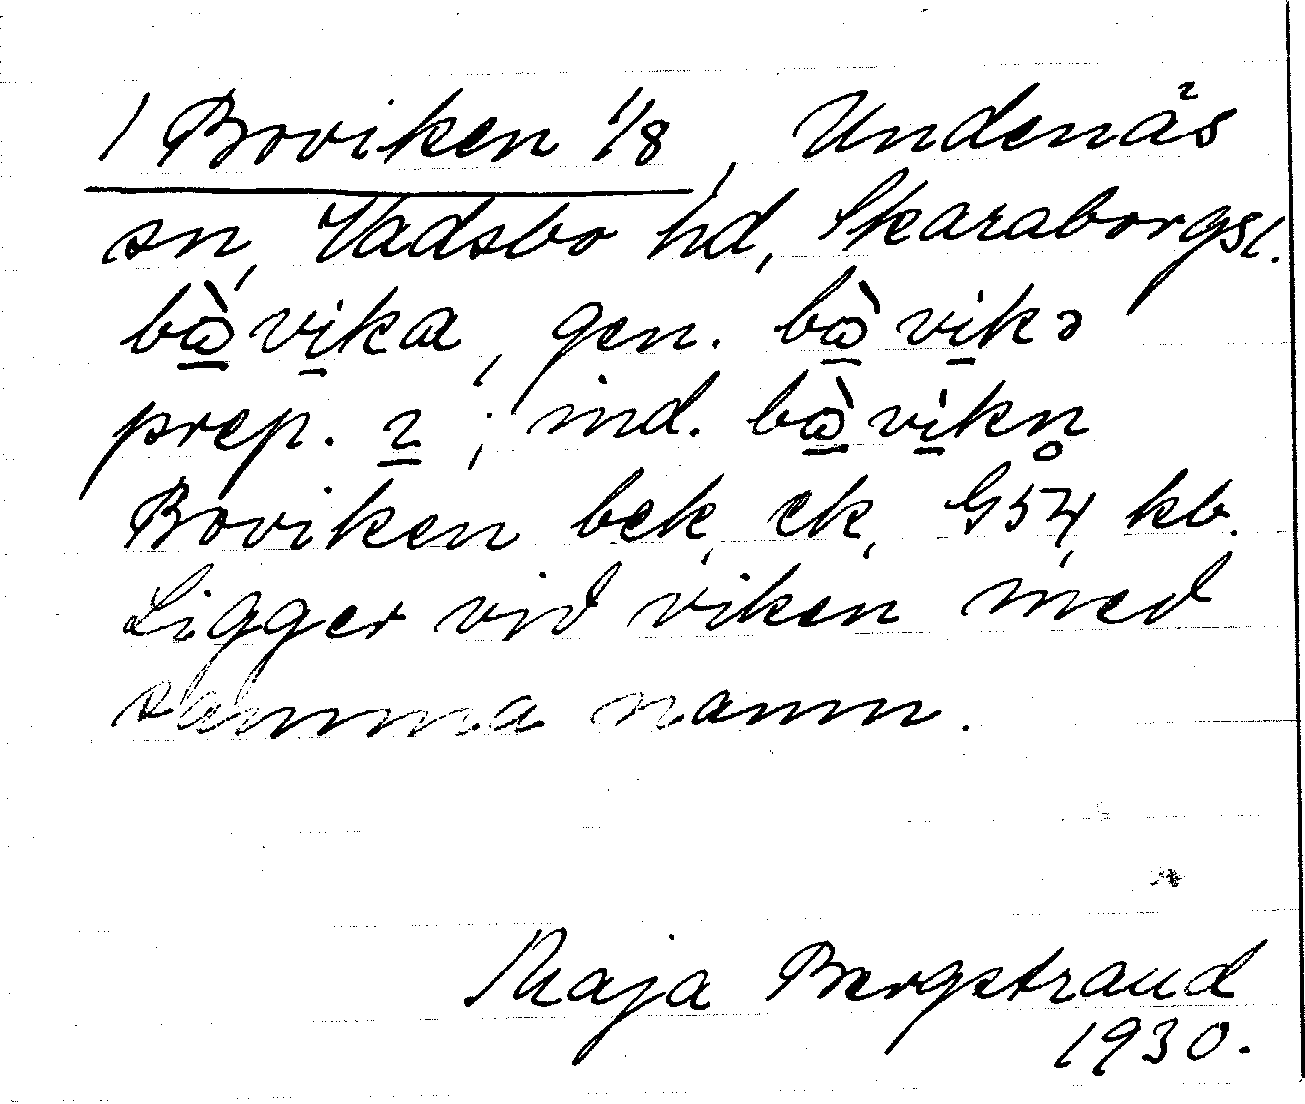 1 Boviken 1/8, Undenäs
sn, Vadsbo hd, Skaraborgsl.
bòvika, gen. bòvikə
prep. ɩ; ind. bòvikn̥
Boviken bek, ek, G54, kb.
Ligger vid viken med
samma namn.
Maja Bergstrand
1930.